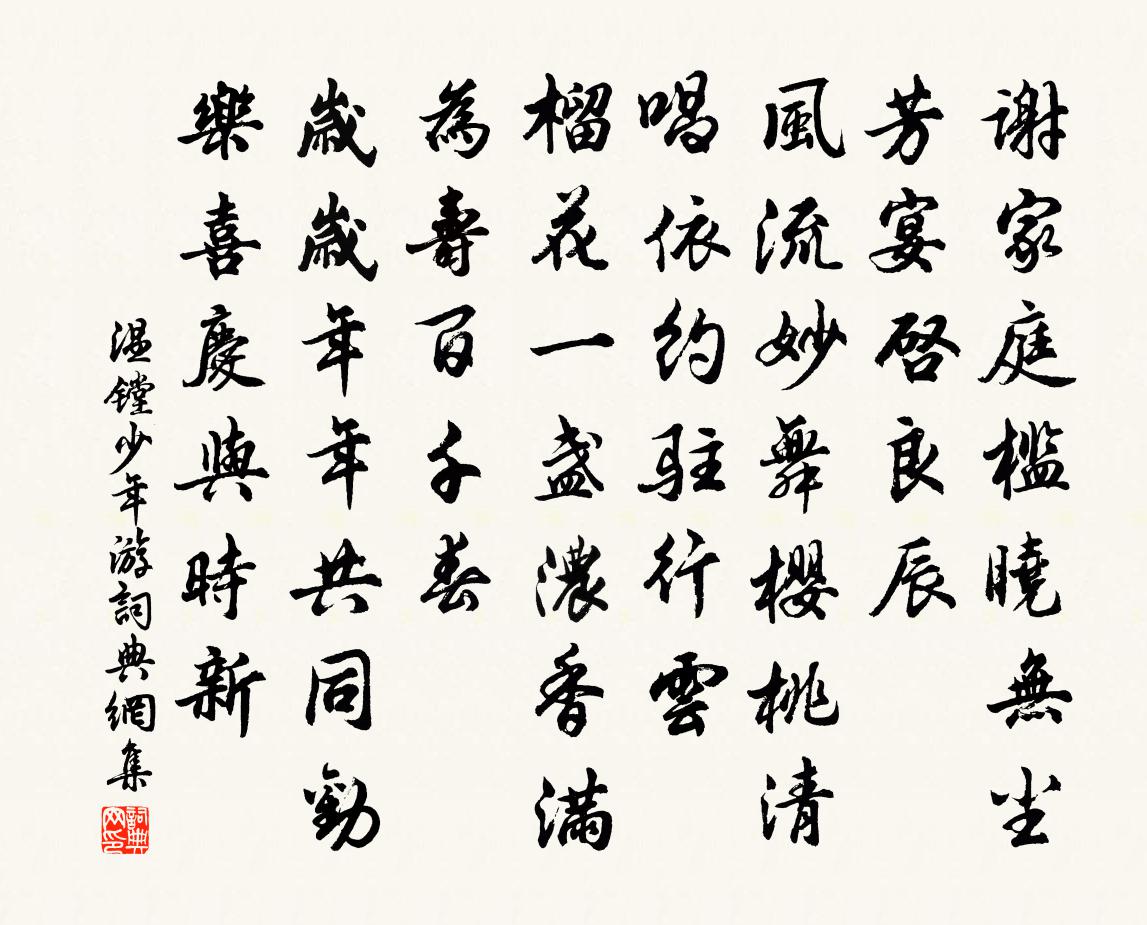 謝家庭檻曉無尘
芳宴啓良辰
風流妙舞櫻桃清
唱依約駐行雲
榴花一盞濃香滿
為壽百千春
歲歲年年共同勸
樂喜慶與時新
温鏜少年游詞典網集
詞典网印